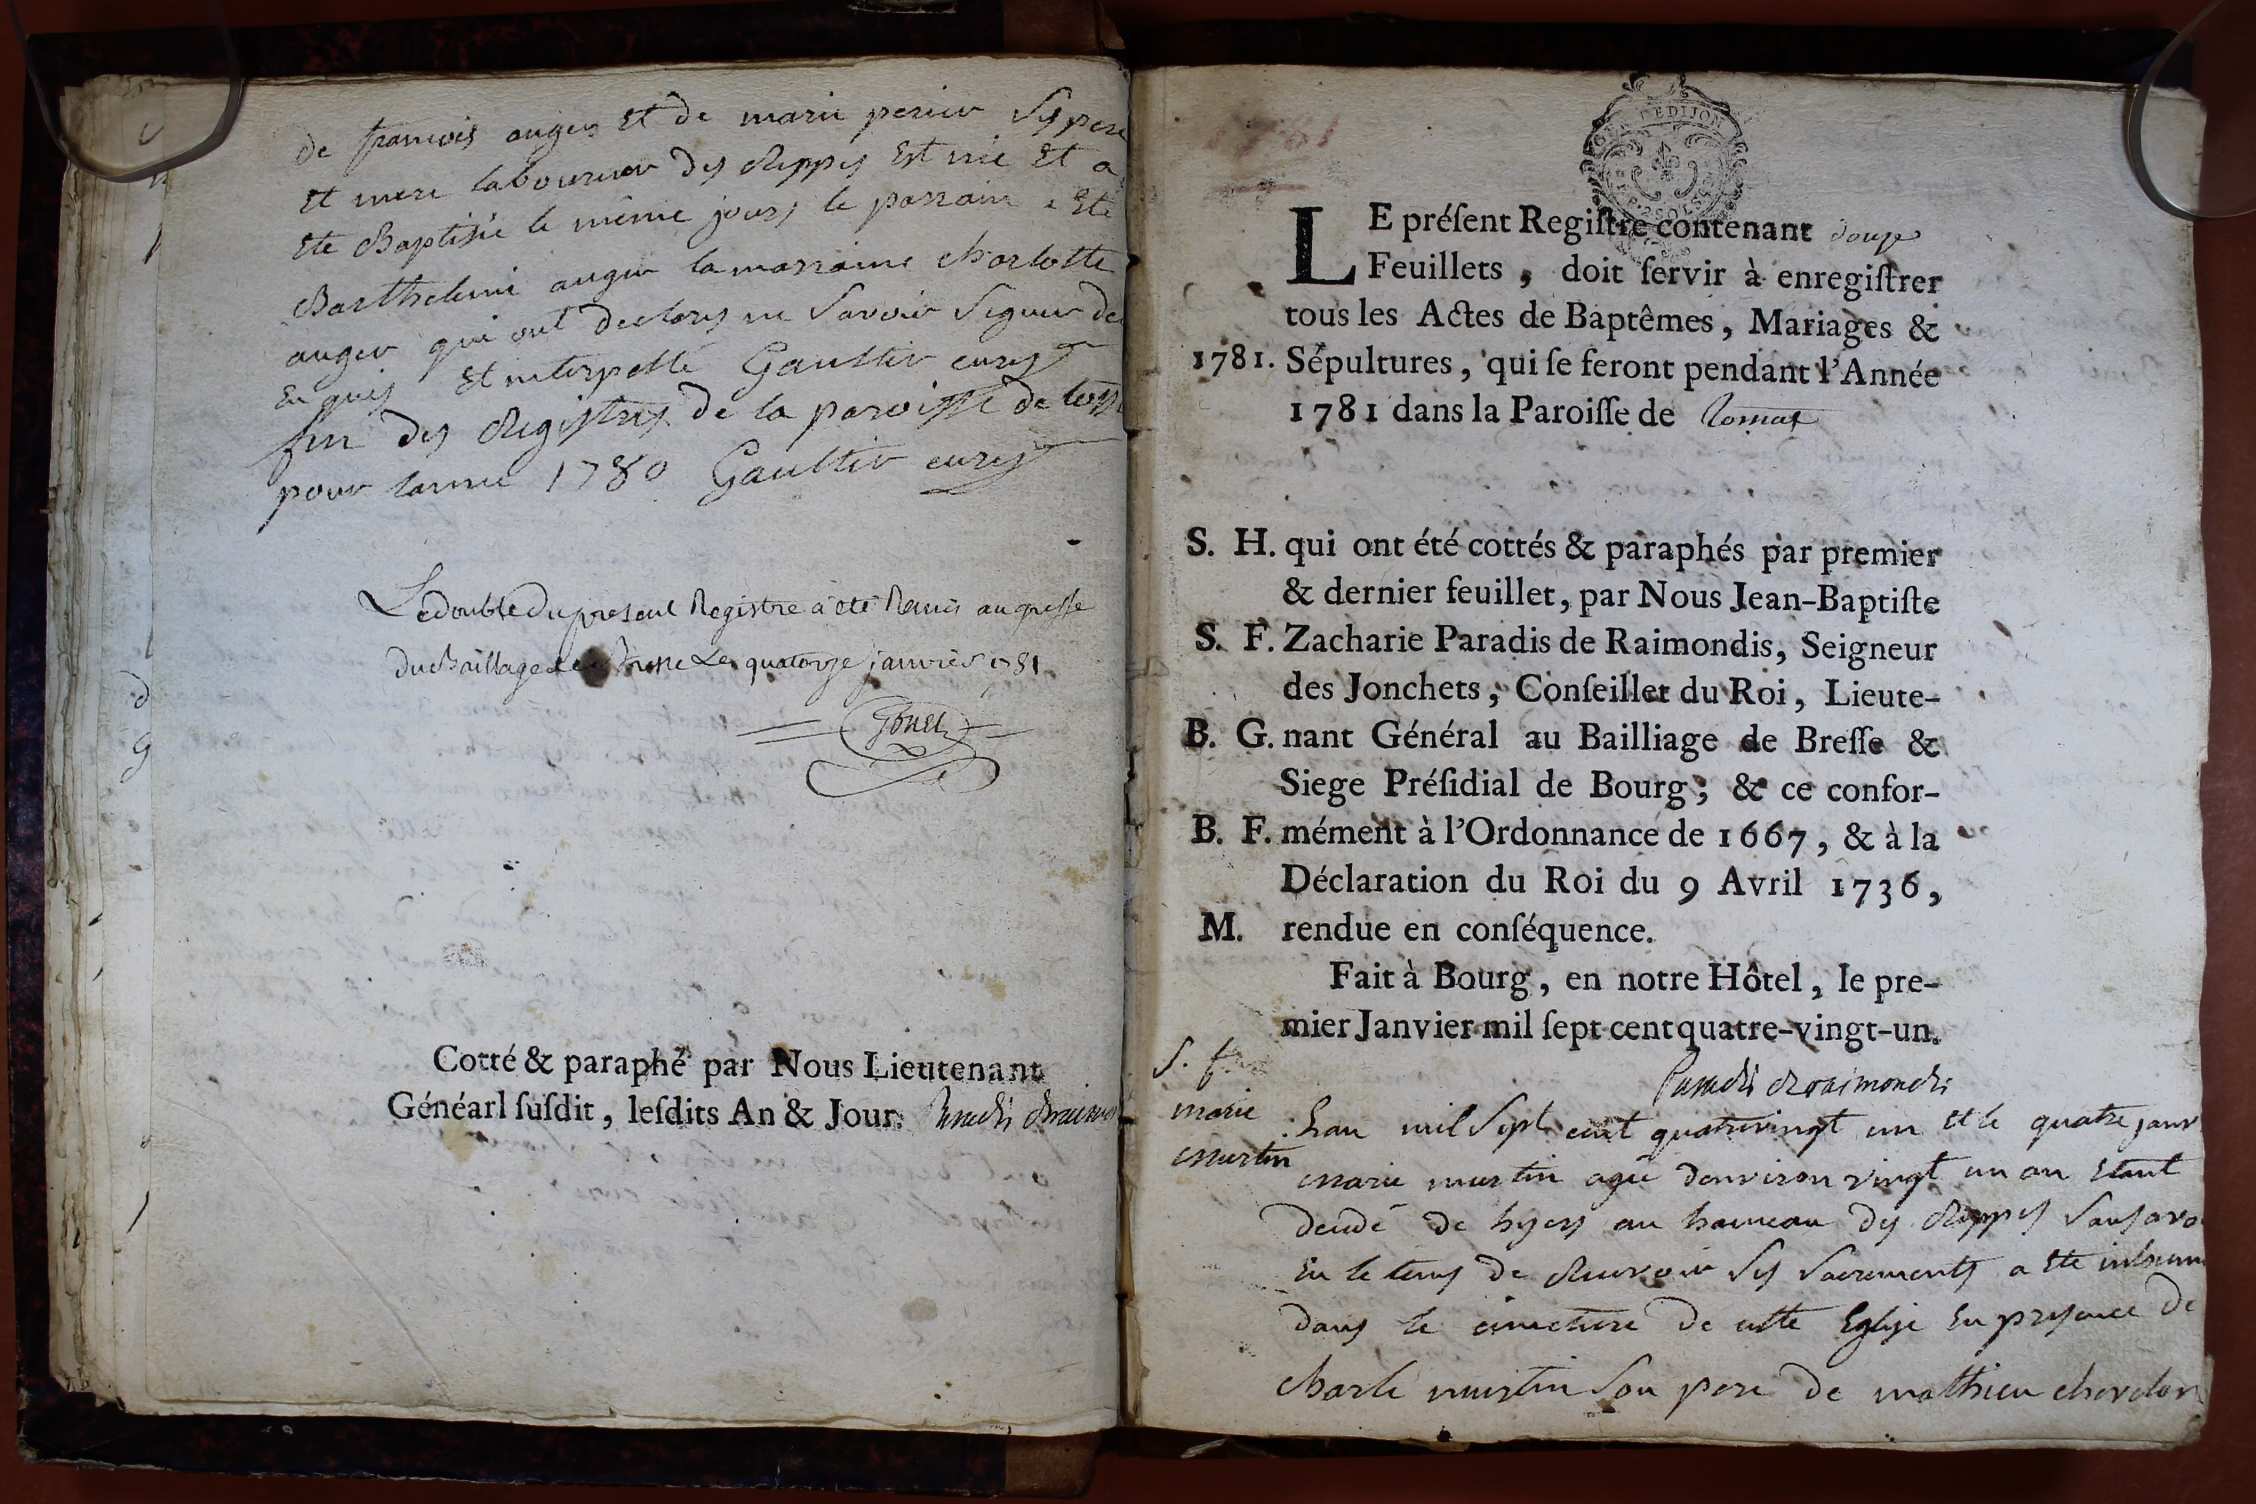 de francois auger Et de marie perier Ses pere
Et mere laboureur des Rippes Est née Et a
Ete Baptisée le même jour, le parrain a Ete
Barthelemi auger la marraine charlotte
auger qui ont declarés ne Savoir Signer de
Enquis Et interpellé Gaultier curé
fin des Registres de la paroisse de
pour lannée 1780 Gaultier curé
Le double du present Registre a été Remis au greffe
Du Baillage de Bresse Le quatorze janvier 1781
Cotté & paraphé par Nous Lieutenant
Généarl ſuſdit, leſdits An & Jour. Paradis
LE préſent Regiſtre contenant douze
Feuillets, doit ſervir à enregiſtrer
tous les Actes de Baptêmes, Mariages &
1781. Sépultures, qui ſe feront pendant l'Année
1781 dans la Paroiſſe de
S. H. qui ont été cottés & paraphés par premier
& dernier feuillet, par Nous Jean-Baptiſte
S. F. Zacharie Paradis de Raimondis, Seigneur
des Jonchets, Conſeiller du Roi, Lieute-
B. G. nant Général au Bailliage de Breſſe &
Siege Préſidial de Bourg; & ce confor-
B. F. mément à l'Ordonnance de 1667, & à la
Déclaration du Roi du 9 Avril 1736,
M. rendue en conſéquence.
Fait à Bourg, en notre Hôtel, le pre-
mier Janvier mil ſept cent quatre-vingt-un.
Paradis de raimondis
S. f.
marie
martin
Lan mil Sept cent quatrevingt un Et le quatre janv
marie martin agée denviron vingt un an Etant
decedé de hyers au hameau des Rippes Sans avo
Eu le tems de Recevoir Ses Sacrements a Ete inhum
dans le cimetiere de cette Eglise En presence de
charle martin Son pere de mathieu